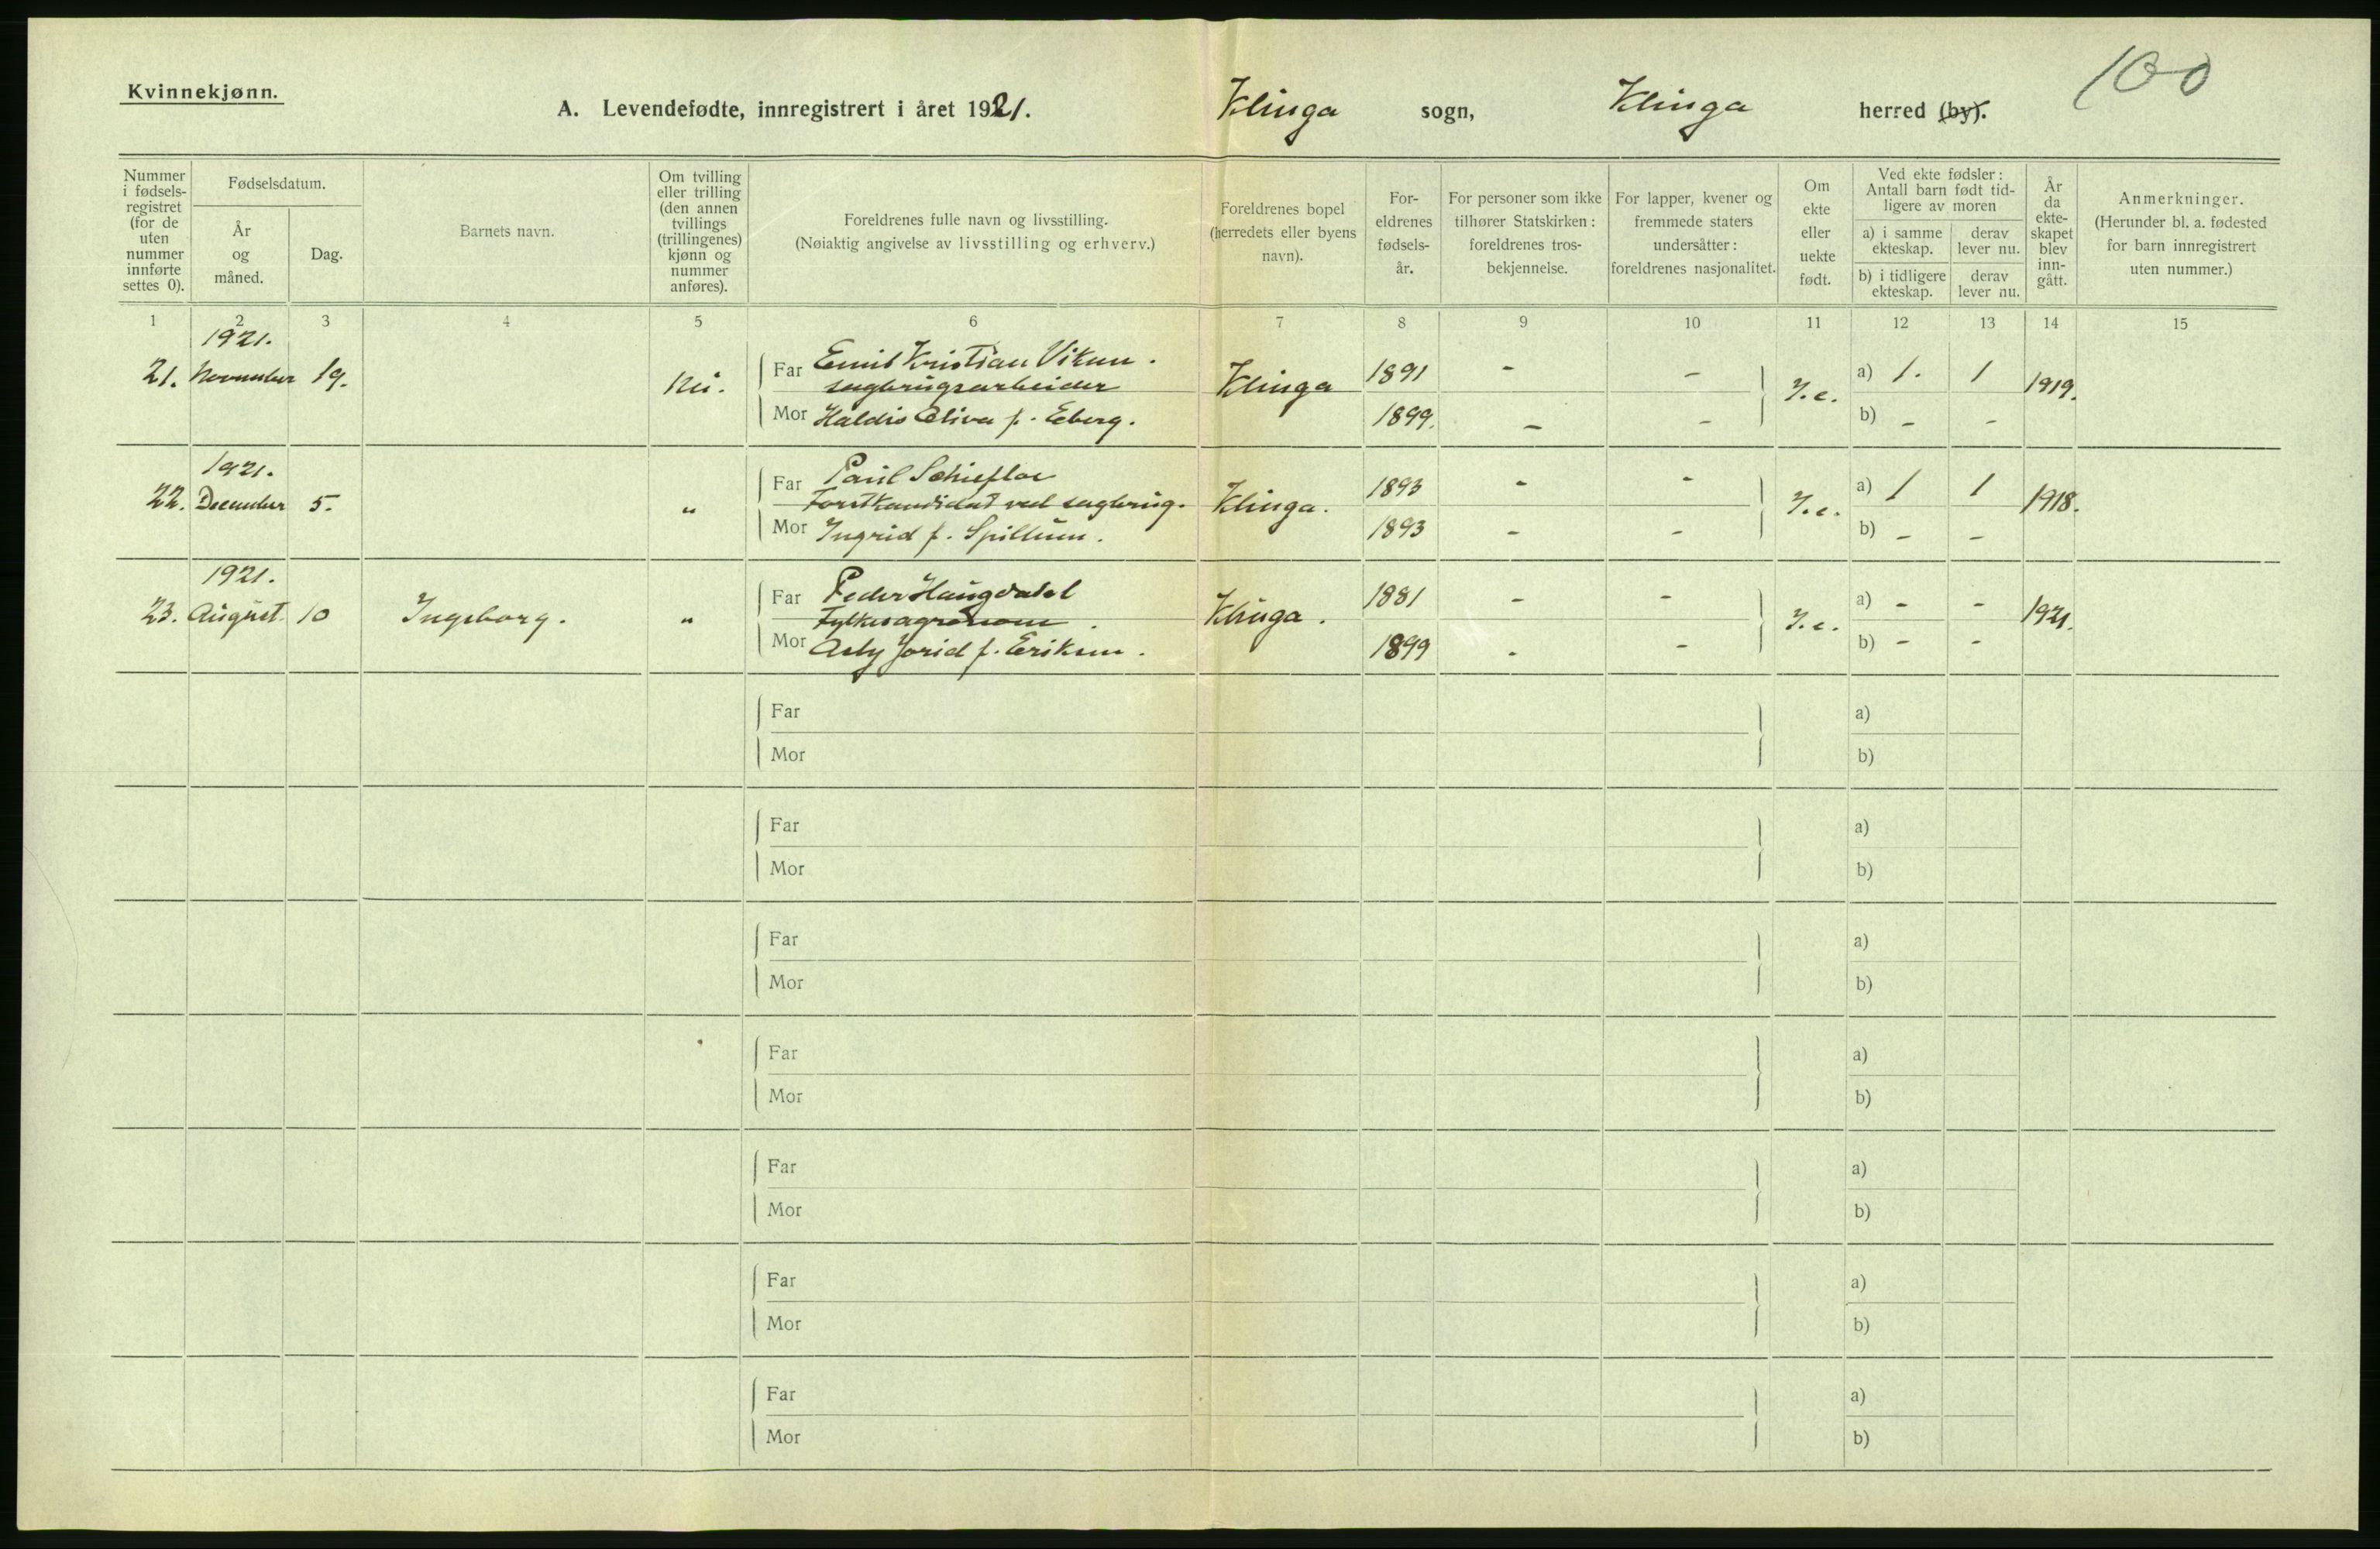 100
Kvinnekjønn.
A. Levendefødte, innregistrert i året 1921. Klinga sogn, Klinga herred (by).
Nummer i fødsels-registret (for de uten nummer innførte settes 0).
Fødselsdatum.
År og måned.
Dag.
Barnets navn.
Om tvilling eller trilling (den annen tvillings (trillingenes) kjønn og nummer anføres).
Foreldrenes fulle navn og livsstilling.
(Nøiaktig angivelse av livsstilling og erhverv.)
Foreldrenes bopel (herredets eller byens navn).
For-eldrenes fødsels-år.
For personer som ikke tilhører Statskirken: foreldrenes tros-bekjennelse.
For lapper, kvener og fremmede staters undersåtter: foreldrenes nasjonalitet.
Om ekte eller uekte født.
Ved ekte fødsler: Antall barn født tid-ligere av moren
a) i samme ekteskap.
derav lever nu.
b) i tidligere ekteskap.
derav lever nu.
År da ekte-skapet blev inn-gått.
Anmerkninger.
(Herunder bl. a. fødested for barn innregistrert uten nummer.)
1 2 3 4 5 6 7 8 9 10 11 12 13 14 15
1921.
Far Emil Kristian Vikun.
21. November 19. Nei. sagbrugsarbeider Klinga 1891 - - F.e. a) 1. 1 1919.
Mor Haldis Oliva f. Eberg. 1899. - - b) - -
1921.
Far Paul Schiefloe 1893 - - a) 1 1
22. December 5. " Forstkandidat ved sagbrug. Klinga. F.e. 1918.
Mor Ingrid f. Spillum. 1893 - - b) - -
1921.
Far Peder Haugdahl 1881 - - a) - -
23. August 10 Ingeborg. " Fylkesagronom. Klinga. F.e. 1921.
Mor Asly Jorid f. Eriksen. 1899 - - b) - -
Far a)
Mor b)
Far a)
Mor b)
Far a)
Mor b)
Far a)
Mor b)
Far a)
Mor b)
Far a)
Mor b)
Far a)
Mor b)